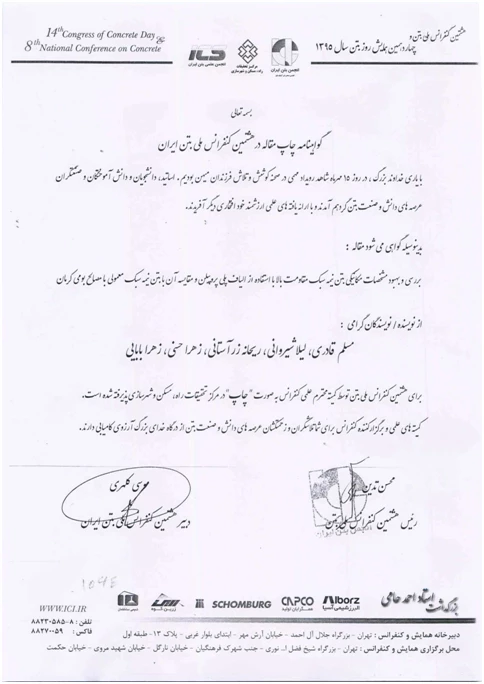 14th Congress of Concrete Day
8th National Conference on Concrete
هشتمین کنفرانس ملی بتن و
چهاردهمین همایش روز بتن سال ۱۳۹۵
ICI
مرکز تحقیقات
راه، مسکن و شهرسازی
انجمن بتن ایران
بسمه تعالی
گواهینامه چاپ مقاله در هشتمین کنفرانس ملی بتن ایران
با یاری خداوند بزرگ، در روز ۱۵ مهرماه شاهد رویداد مهمی در صحنه کوشش و تلاش فرزندان میهن بودیم. اساتید، دانشجویان و دانش آموختگان و صنعتگران
عرصه های دانش و صنعت بتن گردهم آمدند و با ارائه یافته های علمی ارزشمند خود افتخاری دیگر آفریدند.
بدینوسیله گواهی می شود مقاله :
بررسی و بهبود مشخصات مکانیکی بتن نیمه سبک مقاومت بالا با استفاده از الیاف پلی پروپیلن و مقایسه آن با بتن نیمه سبک معمولی با مصالح بومی کرمان
از نویسنده / نویسندگان گرامی :
مسلم قادری، لیلا شیروانی، ریحانه زرآستانی، زهرا حسنی، زهرا بابایی
برای هشتمین کنفرانس ملی بتن توسط کمیته محترم علمی کنفرانس به صورت "چاپ" در مرکز تحقیقات راه، مسکن و شهرسازی پذیرفته شده است.
کمیته های علمی و برگزار کننده کنفرانس برای شما تلاشگران و زحمتکشان عرصه های دانش و صنعت بتن از درگاه خدای بزرگ آرزوی کامیابی دارند.
محسن تدین
رئیس هشتمین کنفرانس ملی بتن
موسی کلهری
دبیر هشتمین کنفرانس ملی بتن ایران
بزرگداشت استاد احمد حامی
Alborz
البرز شیمی آسیا
CAPCO
SCHOMBURG
WWW.ICI.IR
تلفن : ۸-۸۸۲۳۰۵۸۵
فاکس : ۸۸۲۷۰۰۵۹
دبیرخانه همایش و کنفرانس : تهران - بزرگراه جلال آل احمد - خیابان آرش مهر - ابتدای بلوار غربی - پلاک ۱۳ - طبقه اول
محل برگزاری همایش و کنفرانس : تهران - بزرگراه شیخ فضل ا... نوری - جنب شهرک فرهنگیان - خیابان نارگل - خیابان شهید مروی - خیابان حکمت